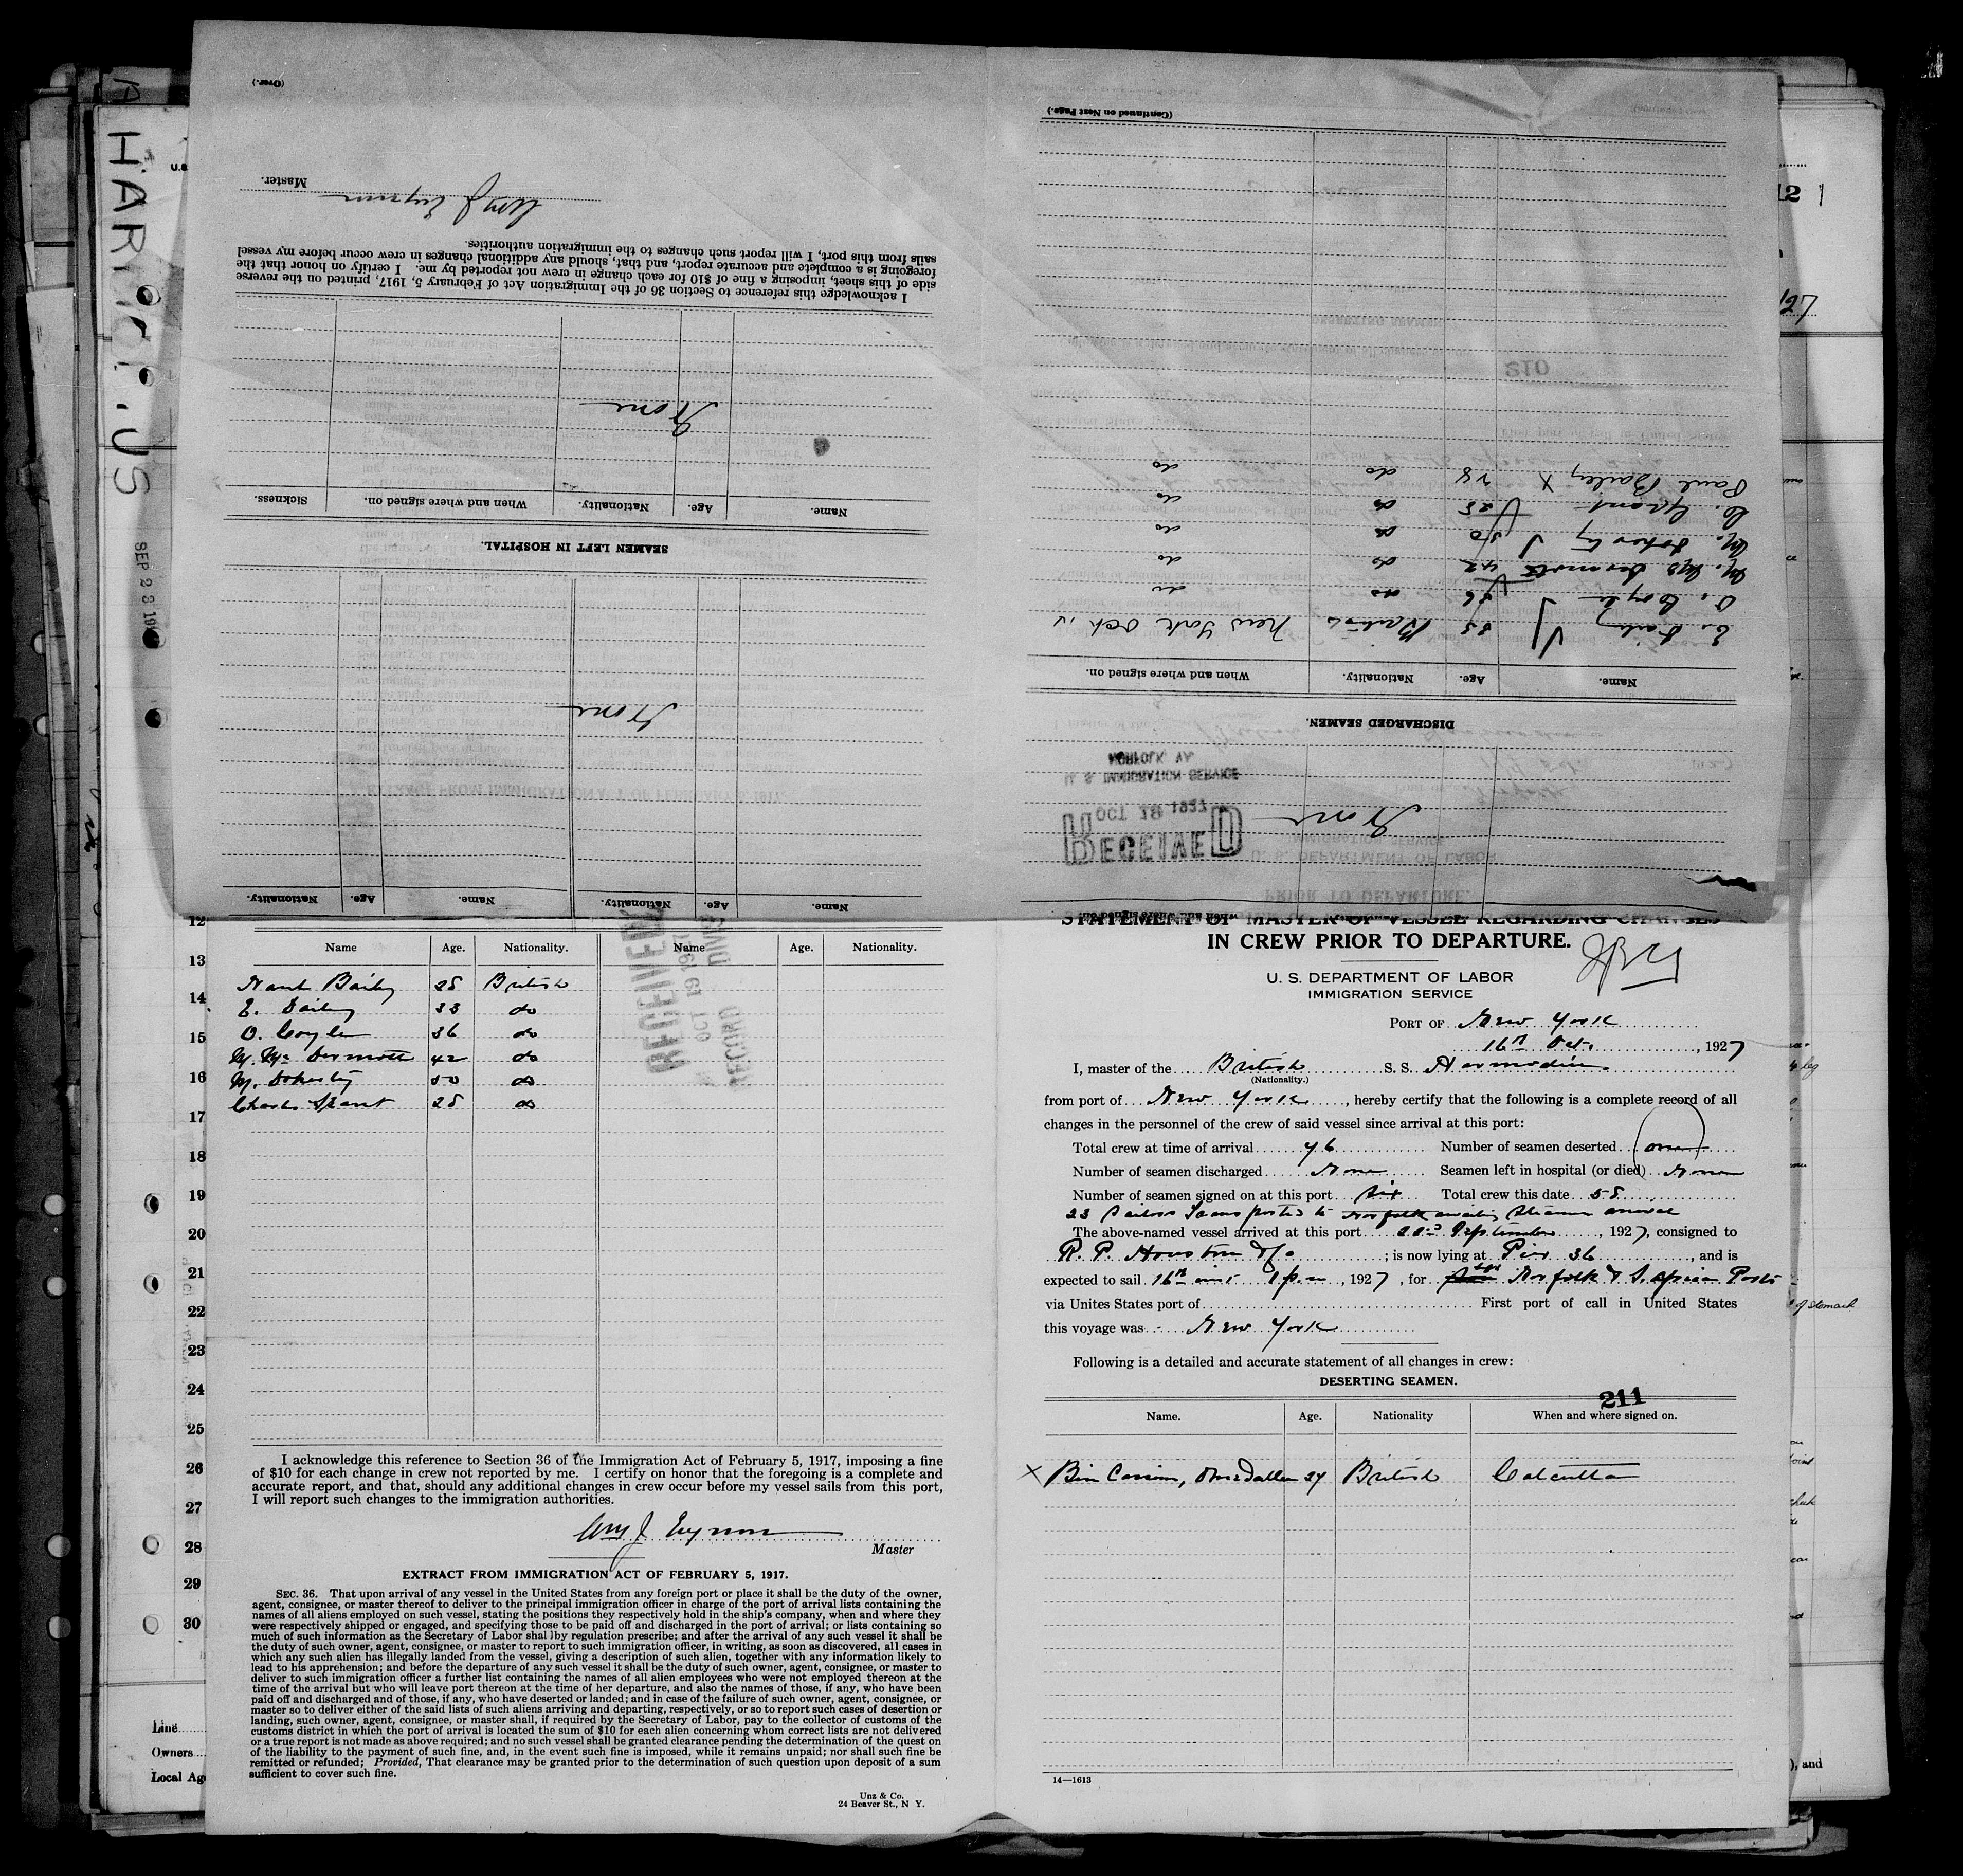 HARMODIUS
SEP 23 19
(Over.)
Master.
Wm J Eynon
I acknowledge this reference to Section 36 of the Immigration Act of February 5, 1917, printed on the reverse
side of this sheet, imposing a fine of $10 for each change in crew not reported by me. I certify on honor that the
foregoing is a complete and accurate report, and that, should any additional changes in crew occur before my vessel
sails from this port, I will report such changes to the immigration authorities.
None
Name. Age. Nationality. When and where signed on. Sickness.
SEAMEN LEFT IN HOSPITAL.
None
Name. Age. Nationality. Name. Age. Nationality.
(Continued on Next Page.)
210
Paul Bailey X 28 do do
C. Grant 25 do do
M. Doherty 50 do do
M. Mc Dermott 42 do do
O. Coyle 36 do do
E. Dailey 33 British New York Oct. 15
Name. Age. Nationality. When and where signed on.
DISCHARGED SEAMEN.
None
RECEIVED
OCT 18 1927
U. S. IMMIGRATION SERVICE
NORFOLK VA.
12
13
14
15
16
17
18
19
20
21
22
23
24
25
26
27
28
29
30
Line
Owners
Local Ag
Name Age. Nationality. Name Age. Nationality.
Bailey 28 British
E. Dailey 33 do
O. Coyle 36 do
M. Mc Dermott 42 do
M. Doherty 50 do
Charles Grant 25 do
RECEIVED
OCT 19 192
RECORD DIVIS
I acknowledge this reference to Section 36 of the Immigration Act of February 5, 1917, imposing a fine
of $10 for each change in crew not reported by me. I certify on honor that the foregoing is a complete and
accurate report, and that, should any additional changes in crew occur before my vessel sails from this port,
I will report such changes to the immigration authorities.
Wm J Eynon
Master
EXTRACT FROM IMMIGRATION ACT OF FEBRUARY 5, 1917.
SEC. 36. That upon arrival of any vessel in the United States from any foreign port or place it shall be the duty of the owner,
agent, consignee, or master thereof to deliver to the principal immigration officer in charge of the port of arrival lists containing the
names of all aliens employed on such vessel, stating the positions they respectively hold in the ship's company, when and where they
were respectively shipped or engaged, and specifying those to be paid off and discharged in the port of arrival; or lists containing so
much of such information as the Secretary of Labor shal lby regulation prescribe; and after the arrival of any such vessel it shall be
the duty of such owner, agent, consignee, or master to report to such immigration officer, in writing, as soon as discovered, all cases in
which any such alien has illegally landed from the vessel, giving a description of such alien, together with any information likely to
lead to his apprehension; and before the departure of any such vessel it shall be the duty of such owner, agent, consignee, or master to
deliver to such immigration officer a further list containing the names of all alien employees who were not employed thereon at the
time of the arrival but who will leave port thereon at the time of her departure, and also the names of those, if any, who have been
paid off and discharged and of those, if any, who have deserted or landed; and in case of the failure of such owner, agent, consignee, or
master so to deliver either of the said lists of such aliens arriving and departing, respectively, or so to report such cases of desertion or
landing, such owner, agent, consignee, or master shall, if required by the Secretary of Labor, pay to the collector of customs of the
customs district in which the port of arrival is located the sum of $10 for each alien concerning whom correct lists are not delivered
or a true report is not made as above required; and no such vessel shall be granted clearance pending the determination of the quest on
of the liability to the payment of such fine, and, in the event such fine is imposed, while it remains unpaid; nor shall such fine be
remitted or refunded; Provided, That clearance may be granted prior to the determination of such question upon deposit of a sum
sufficient to cover such fine.
Unz & Co.
24 Beaver St., N Y.
STATEMENT OF MASTER OF VESSEL REGARDING CHANGES
IN CREW PRIOR TO DEPARTURE.
U. S. DEPARTMENT OF LABOR
IMMIGRATION SERVICE
PORT OF New York
16th Oct. , 1927
I, master of the British S. S. Harmodius
(Nationality.)
from port of New York, hereby certify that the following is a complete record of all
changes in the personnel of the crew of said vessel since arrival at this port:
Total crew at time of arrival 76 Number of seamen deserted one
Number of seamen discharged None Seamen left in hospital (or died) None
Number of seamen signed on at this port six Total crew this date 58
23 Sailors Transported to Norfolk awaiting Steamer arrival
The above-named vessel arrived at this port 22nd September, 1927, consigned to
R. P. Houston & Co ; is now lying at Pier 36, and is
expected to sail 16th inst 1 p.m, 1927, for Norfolk & S. African Ports
via Unites States port of First port of call in United States
this voyage was New York
Following is a detailed and accurate statement of all changes in crew:
DESERTING SEAMEN.
211
Name. Age. Nationality When and where signed on.
X Bin Cassim, 24 British Calcutta
14—1613
of stomach
), and